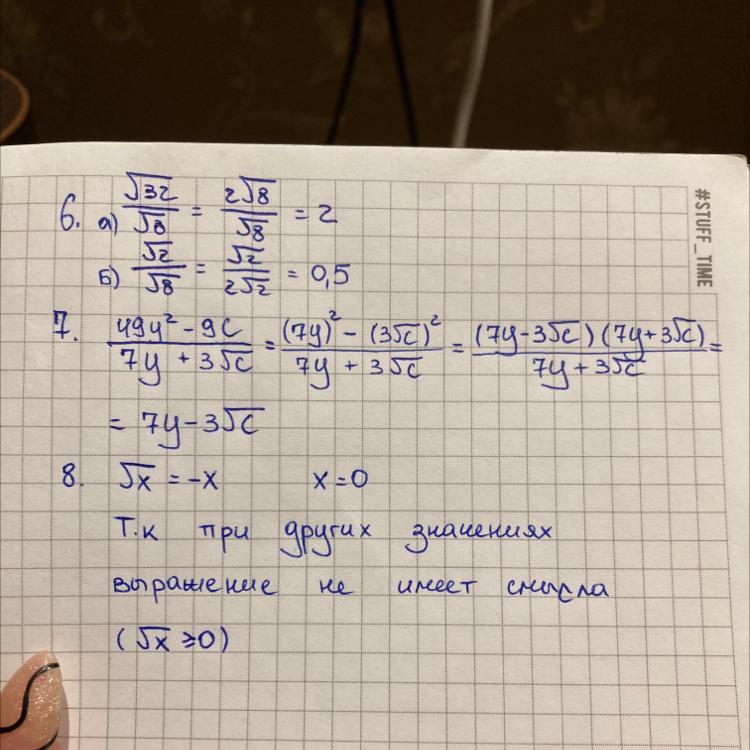 6. а) √32/√8 = 2√8/√8 = 2
б) √2/√8 = √2/2√2 = 0,5
7. 49y² - 9c/7y + 3√c = (7y)² - (3√c)²/7y + 3√c = (7y-3√c)(7y+3√c)/7y+3√c =
= 7y-3√c
8. √x = -x x=0
Т.к при других значениях
выражение не имеет смысла
(√x ≥0)
#STUFF_TIME